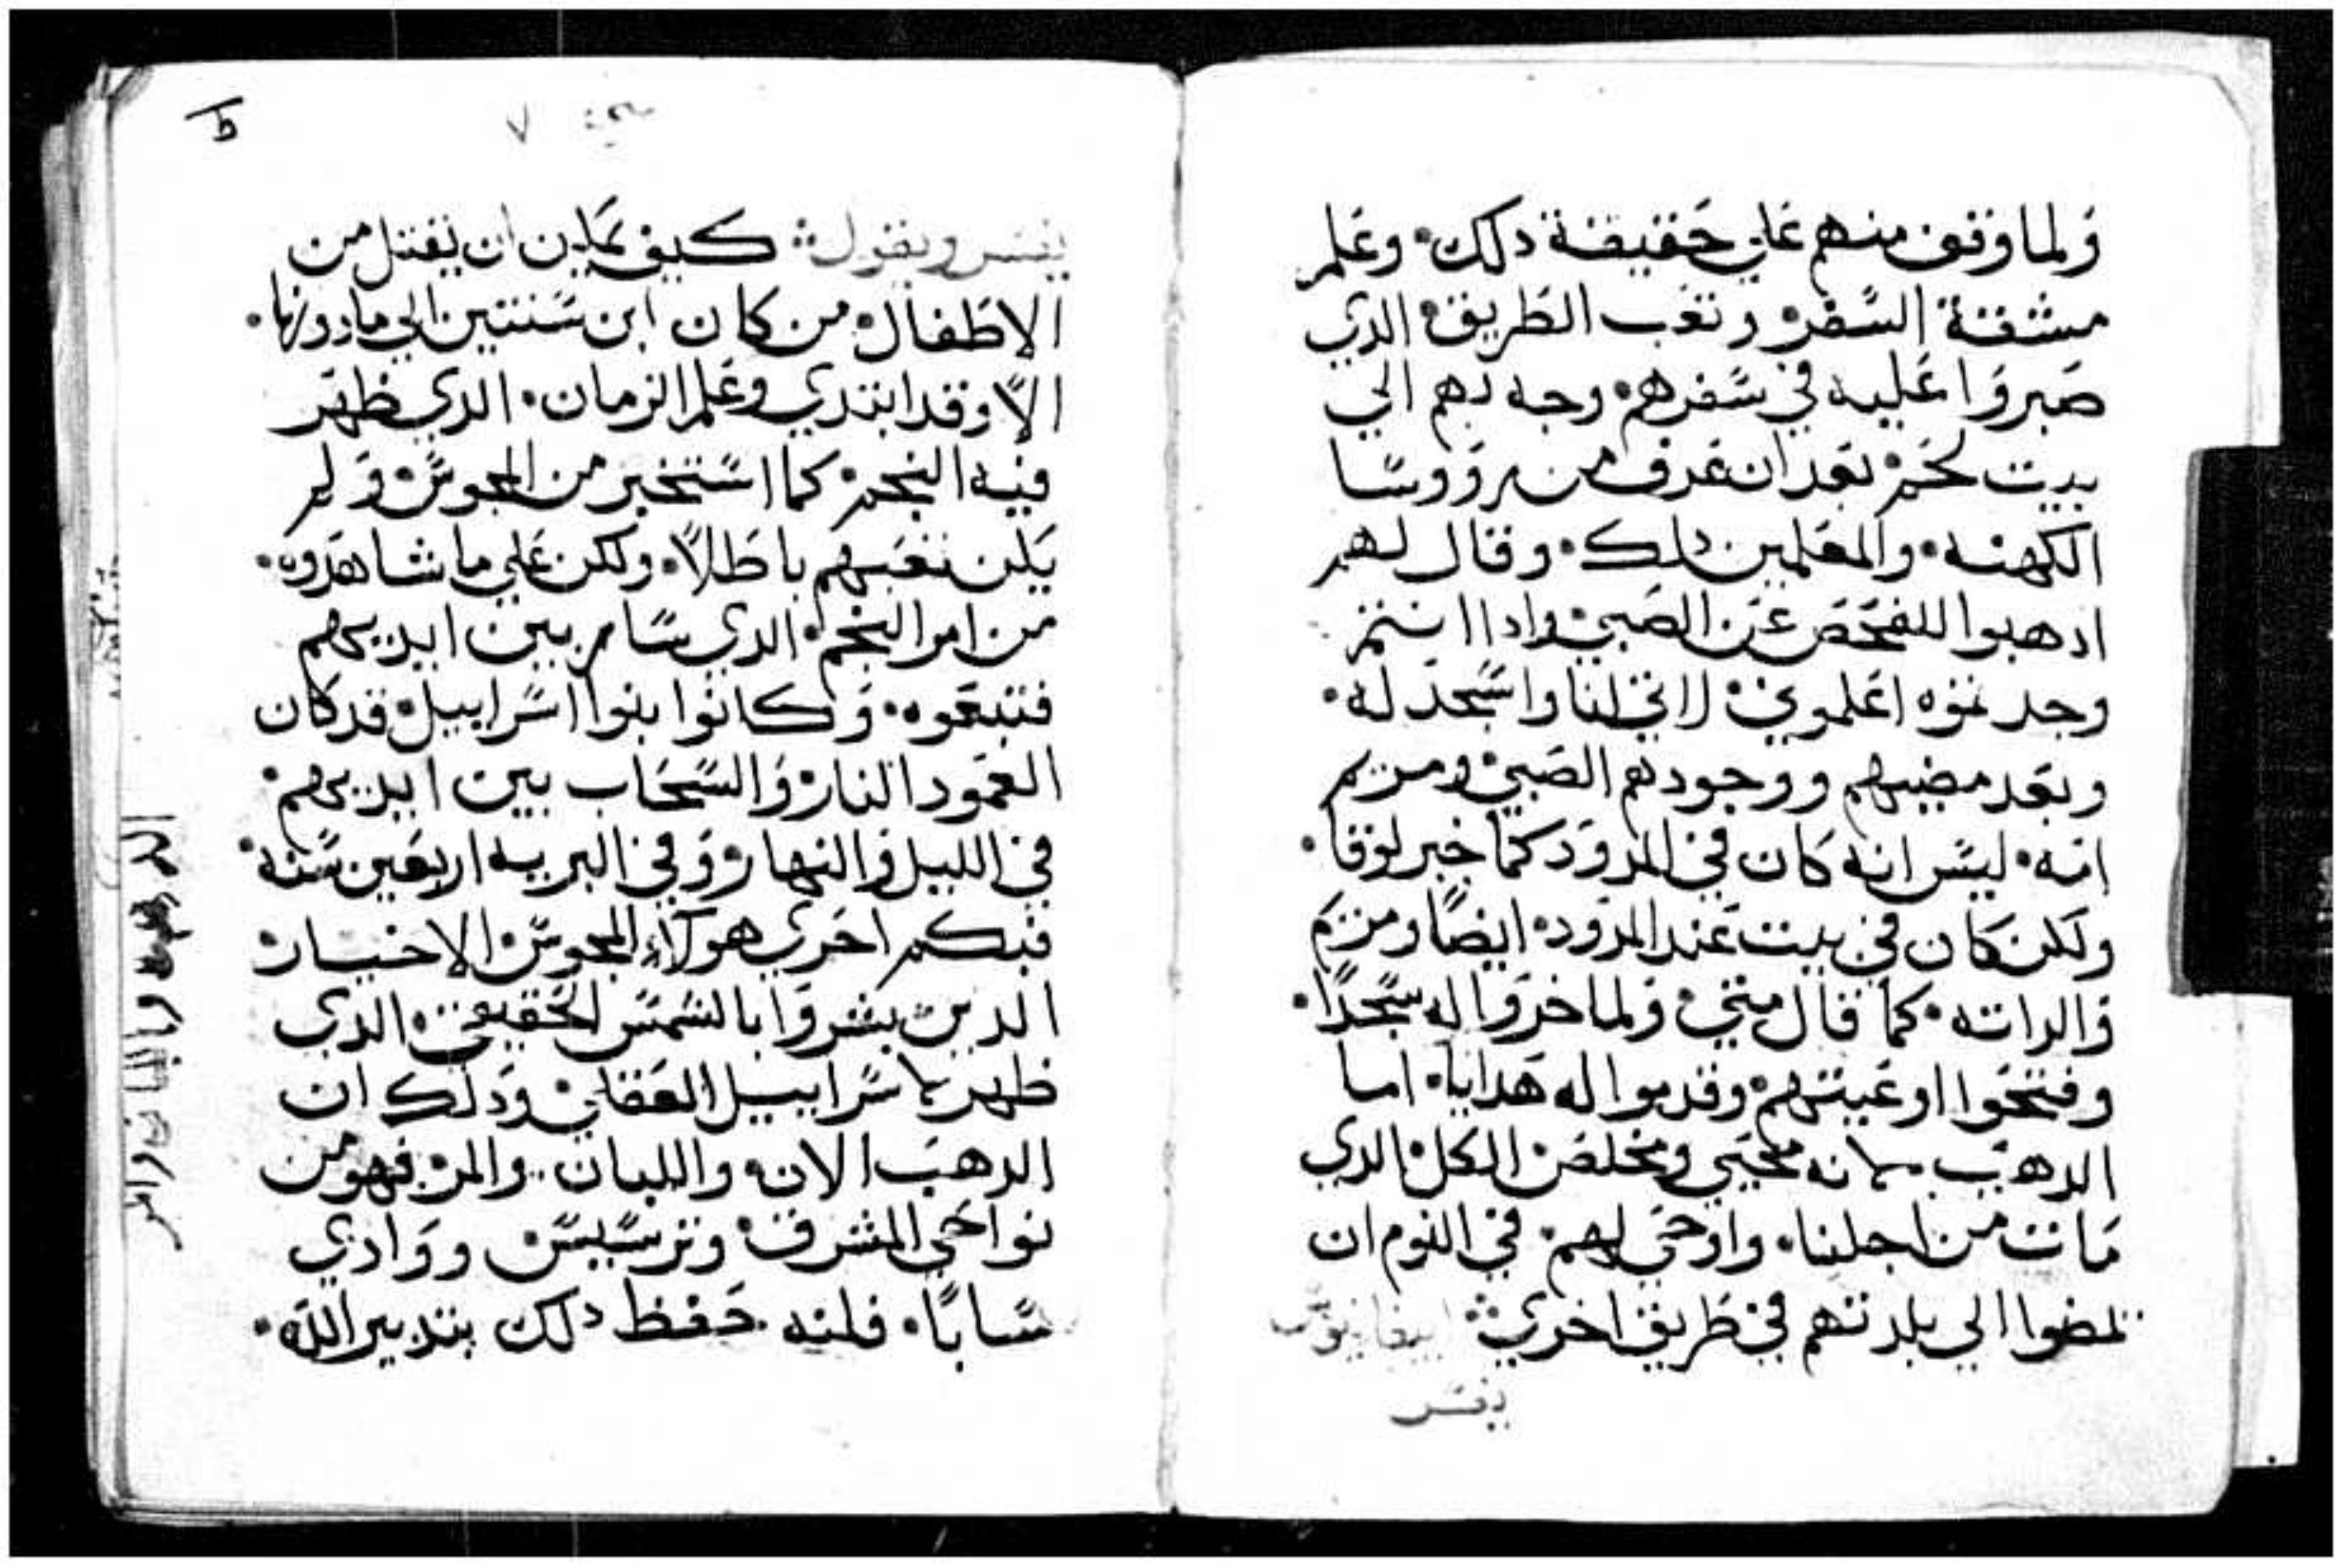 ولما وقف منهم علي حقيقة دلك· وعلم
مشقة السفر· وتعب الطريق· الدي
صبروا عليه في سفرهم· وجه بهم الي
بيت لحم· بعد ان عرف من رووسا
الكهنه· والمعلمين دلك· وقال لهم
ادهبوا للفحص عن الصبي· وادا انتم
وجدتموه اعلموني· لاتي لنا واسجد له·
وبعد مضيهم ووجودهم الصبي· ومريم
امه· ليس انه كان في المدود كما خبر لوقا·
ولكن كان في بيت عند المدود· ايضا ومريم
والداته· كما قال متي· ولما خروا له سجدا·
وفتحوا اوعيتهم· وقدموا له هدايا· اما
الدهب· لانه محيي ومخلص الكل· الدي
مات من اجلنا· واوحي لهم· في النوم ان
يمضوا الي بلدتهم في طريق اخري· ابيفانيوس
يفسر
ط
٧
يفسر ويقول· كيف يمكن ان يقتل من
الاطفال· من كان ابن سنتين الي ما دونها·
الا وقد ابتدي وعلم الزمان· الدي ظهر
فيه النجم· كما استخبر من المجوس· ولم
يكن تعبهم باطلا· ولكن علي ما شاهدوه·
من امر النجم· الدي سار بين ايديهم
فتبعوه· وكانوا بنوا اسراييل· قد كان
العمود النار· والسحاب بين ايديهم·
في الليل والنهار· وفي البريه اربعين سنة·
فبكم احري هولاء المجوس· الاخيار·
الدين بشروا بالشمس الحقيقي· الدي
ظهر لاسراييل العقلي· ودلك ان
الدهب الان· واللبان· والمر· فهو من
نواحي المشرق· وترسيس· ووادي
سابا· فلنه حفظ دلك بتدبير الله·